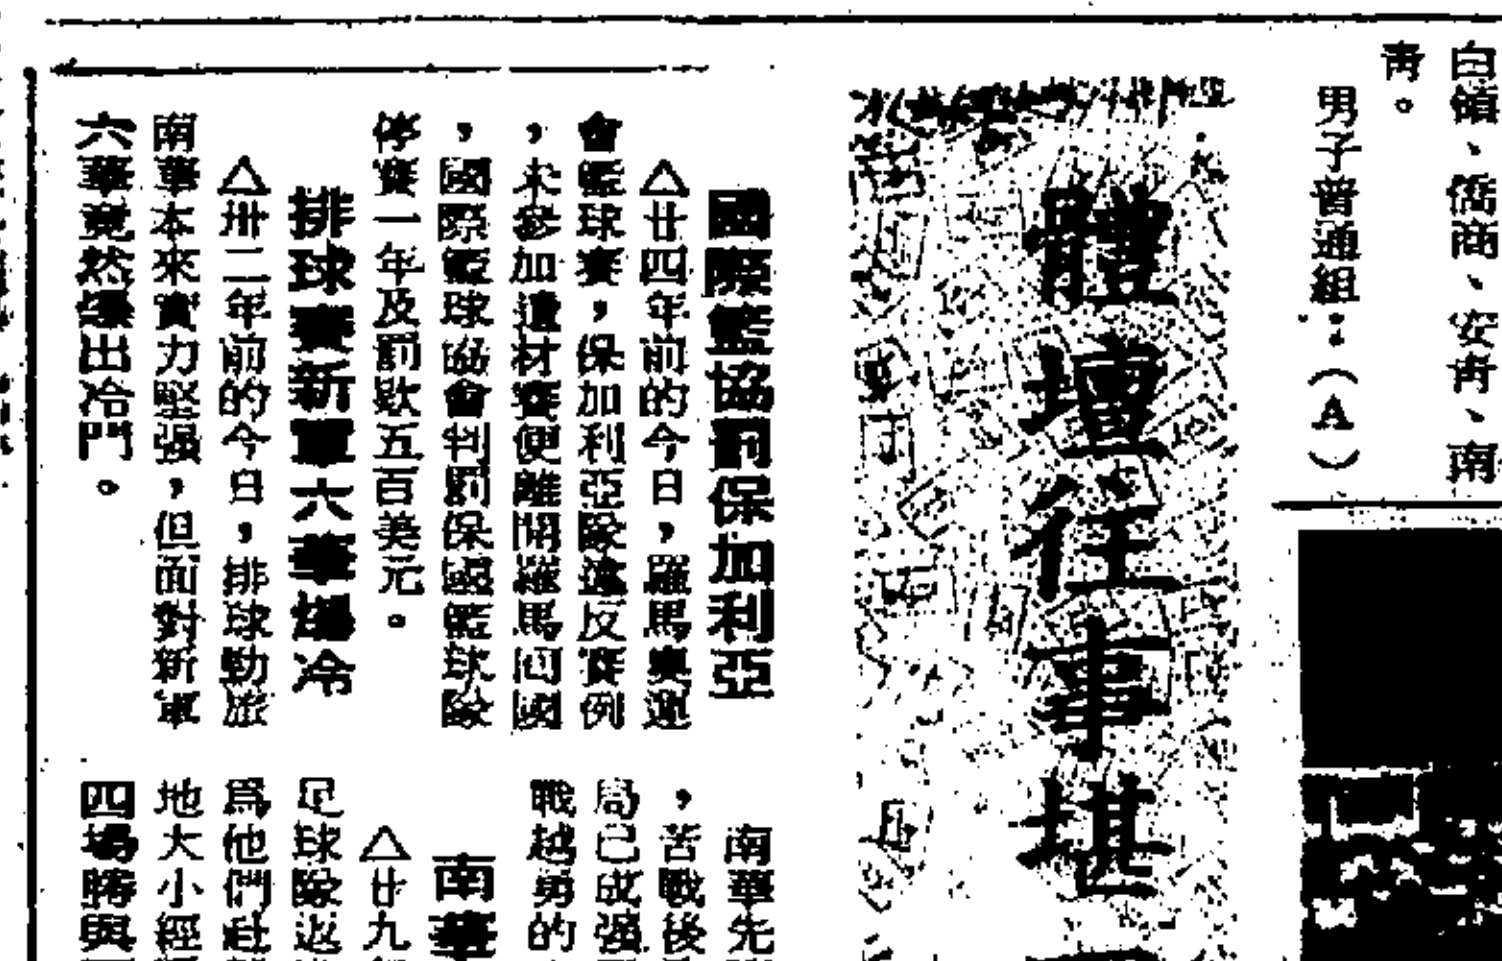 白領、僑商、安青、南
青。
男子普通組：（A）
體壇往事堪
國際籃協罰保加利亞
△廿四年前的今日，羅馬奧運
會籃球賽，保加利亞隊違反賽例
，未參加遺材賽便離開羅馬回國
，國際籃球協會判罰保國籃球隊
停賽一年及罰款五百美元。
排球賽新軍六華爆冷
△卅二年前的今日，排球勁旅
南華本來實力堅强，但面對新軍
六華竟然爆出冷門。
南華先
，苦戰後
局已成强
戰越勇的
南華
△廿九
足球隊返
爲他們赴
地大小經
四場勝與